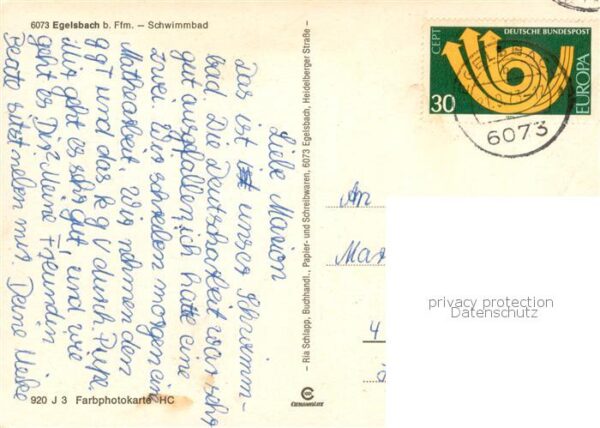 6073 Egelsbach b. Ffm. — Schwimmbad
Liebe Marion
Das ist ist unser Schwimm-
bad. Die Deutscharbeit war sehr
gut ausgefallen, ich hatte eine
zwei. Wir schreiben morgen eine
Mathearbeit. Wir nehmen den
ggT und das kgV durch. Pipe.
Mir geht es sehr gut, und wie
geht es Dir? Meine Freundin
Beate sitzt neben mir. Deine
920 J 3 Farbphotokarte HC
– Ria Schlapp, Buchhandl., Papier- und Schreibwaren, 6073 Egelsbach, Heidelberger Straße –
CEPT
DEUTSCHE BUNDESPOST
EUROPA
30
6073
An
Mar
4
privacy protection
Datenschutz